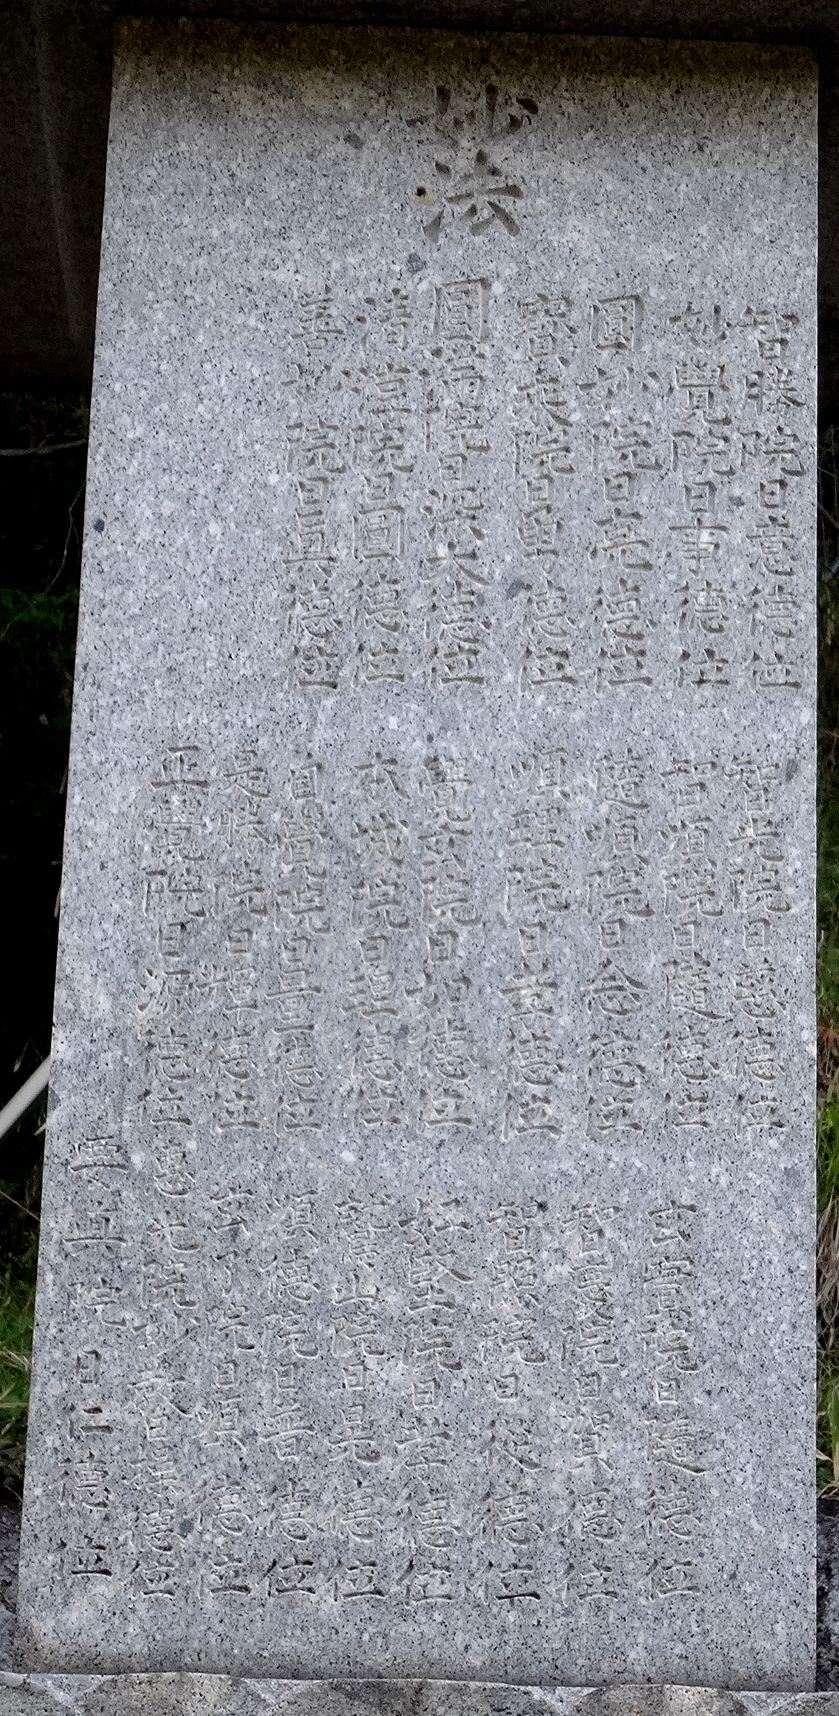 妙法
智勝院日意德位
妙覺院日事德位
圓妙院日亮德位
寶乗院日勇德位
圓滿院日深大德位
清涼院日圓德位
善妙院日眞德位
智光院日慈德位
智順院日隨德位
隨順院日念德位
順理院日幸德位
覺玄院日如德位
院日理德位
自覺院日量德位
是勝院日輝德位
正覺院日源德位
玄實院日隨德位
智慶院日賀德位
智照院日從德位
好堅院日幸德位
鷲山院日晃德位
順德院日普德位
玄了院日順德位
惠光院妙德位
要眞院日仁德位